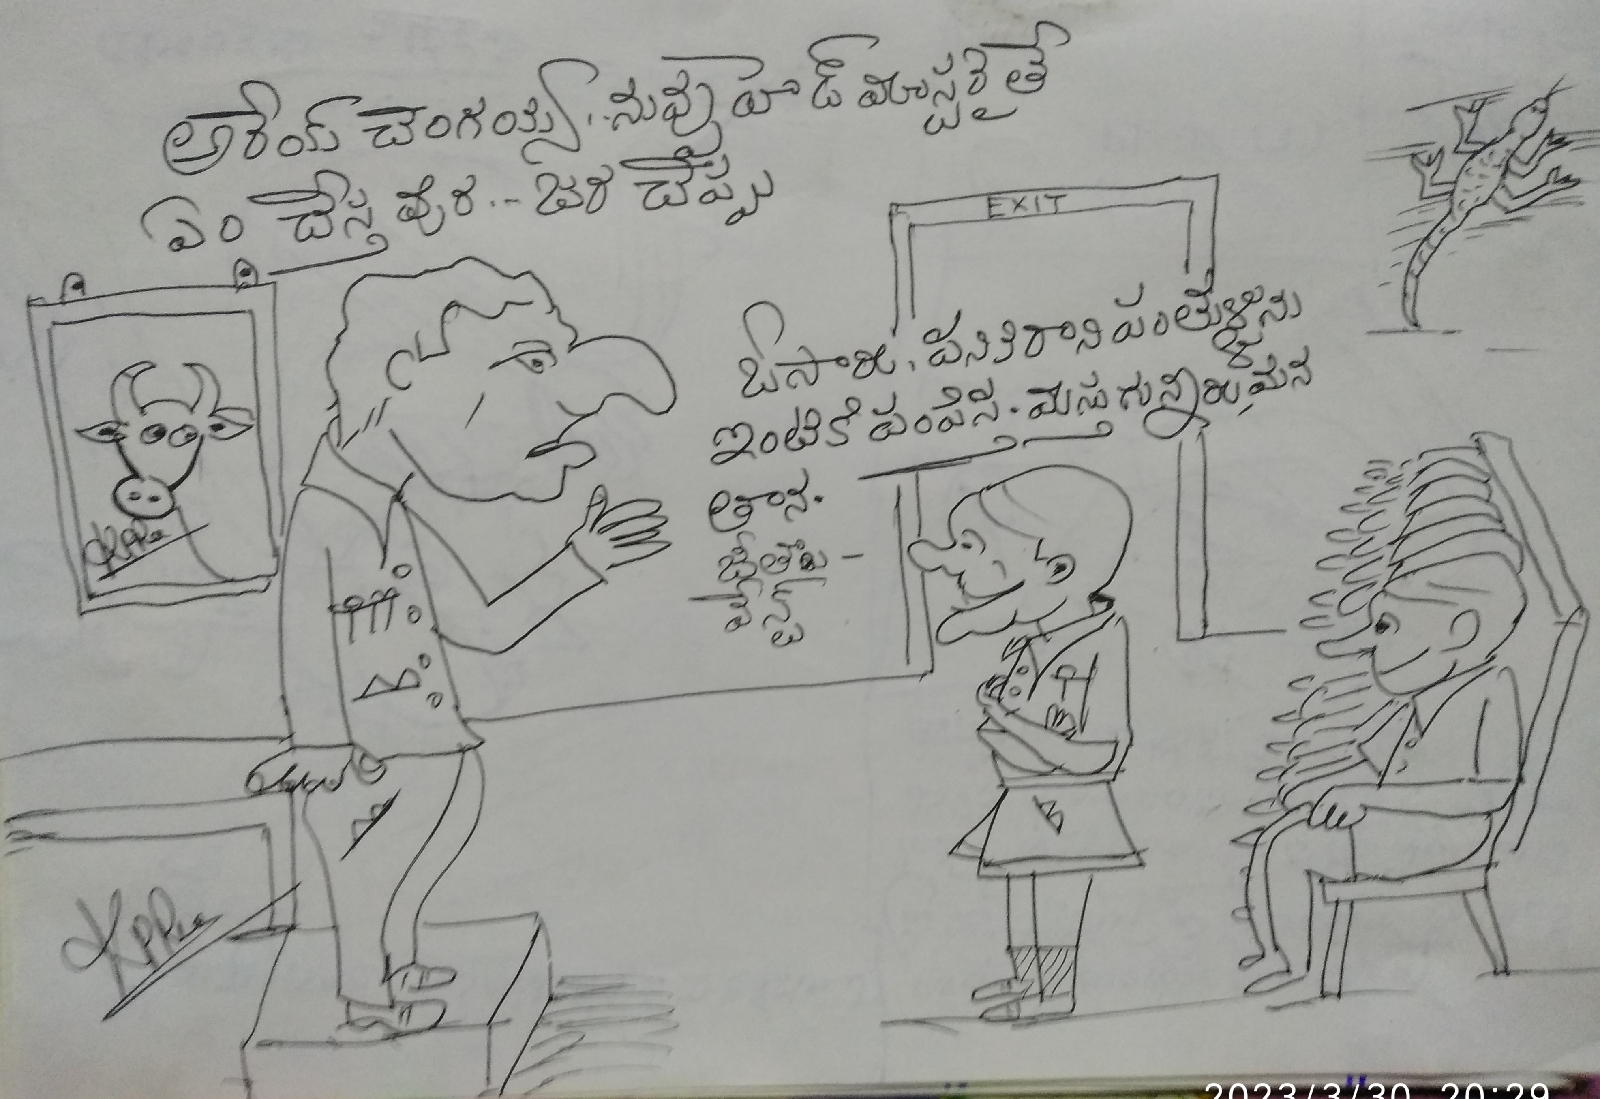 అరేయ్ చెంగయ్య..నువ్వు హెడ్ మాస్టరైతే
ఏం చేస్త వుర..జర చెప్పు
EXIT
ఓసారు, పనికిరాని పంతుళ్ళను
ఇంటికే పంపిస్త. మస్తుగున్నారు, మన
తాన.
జీతాలు
వేస్ట్
2023/3/30 20:29